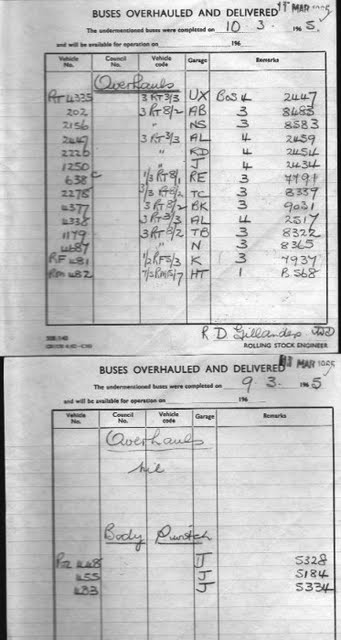 BUSES OVERHAULED AND DELIVERED 11 MAR 1965
The undermentioned buses were completed on 10 . 3 . 196 5.
and will be available for operation on 196
Vehicle No. Council No. Vehicle code Garage Remarks
Overhauls
RT 4335 3 RT 3/3 UX BoS 4 2447
202 3 RT 8/2 AB 3 8483
2156 " NS 3 8583
2447 3 RT 3/3 AL 4 2459
2226 " RD 4 2454
1250 " J 4 2434
638 C 1/3 RT 8/1 RE 3 7791
2278 3/3 RT 8/2 TC 3 8339
4377 3 RT 8/2 BK 3 9031
4338 3 RT 3/3 AL 4 2517
1179 3 RT 8/2 TB 3 8322
4687 " N 3 8365
RF 481 1/2 RF 5/3 K 3 7937
RM 482 HT 1 B.568
R D Gillanders
ROLLING STOCK ENGINEER
BUSES OVERHAULED AND DELIVERED MAR 1965
The undermentioned buses were completed on 9 3. 196 5
and will be available for operation on 196
Vehicle No. Council No. Vehicle code Garage Remarks
Overhauls
Nil
Body Switch
448 J 5328
455 J 5184
483 J 5334